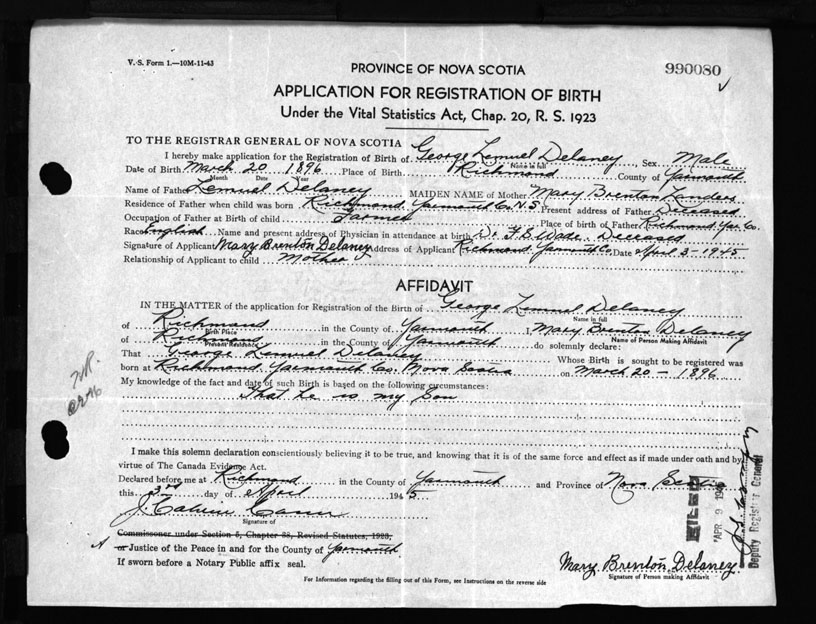 V. S. Form 1.—10M-11-43
PROVINCE OF NOVA SCOTIA
990080
APPLICATION FOR REGISTRATION OF BIRTH
Under the Vital Statistics Act, Chap. 20, R. S. 1923
TO THE REGISTRAR GENERAL OF NOVA SCOTIA
I hereby make application for the Registration of Birth of George Lemuel Delaney Sex Male
Name in full
Date of Birth March 20 1896 Place of Birth Richmond County of Yarmouth
Month Date Year
Name of Father Lemuel Delaney MAIDEN NAME of Mother Mary Brenton Landers
Residence of Father when child was born Richmond Yarmouth Co. N.S. Present address of Father Deceased
Occupation of Father at Birth of child Farmer Place of birth of Father Richmond Yar. Co.
Race English Name and present address of Physician in attendance at birth Dr. F. S. Wade Deceased
Signature of Applicant Mary Brenton Delaney Address of Applicant Richmond Yarmouth Co. Date April 3-1945
Relationship of Applicant to child Mother
AFFIDAVIT
IN THE MATTER of the application for Registration of the Birth of George Lemuel Delaney
Name in full
of Richmond in the County of Yarmouth I, Mary Brenton Delaney
Birth Place
Name of Person Making Affidavit
of Richmond in the County of Yarmouth do solemnly declare:
Present Residence
That George Lemuel Delaney Whose Birth is sought to be registered was
born at Richmond Yarmouth Co. Nova Scotia on March 20-1896
My knowledge of the fact and date of such Birth is based on the following circumstances:
That he is my Son
I make this solemn declaration conscientiously believing it to be true, and knowing that it is of the same force and effect as if made under oath and by
virtue of The Canada Evidence Act.
Declared before me at Richmond in the County of Yarmouth and Province of Nova Scotia
this 3rd day of April 1945
J. Calvin
Signature of
Commissioner under Section 5, Chapter 38, Revised Statutes, 1923,
A or Justice of the Peace in and for the County of Yarmouth
If sworn before a Notary Public affix seal.
For Information regarding the filling out of this Form, see Instructions on the reverse side
Mary Brenton Delaney
Signature of Person making Affidavit
FILED
APR 9 194
Deputy Registrar General